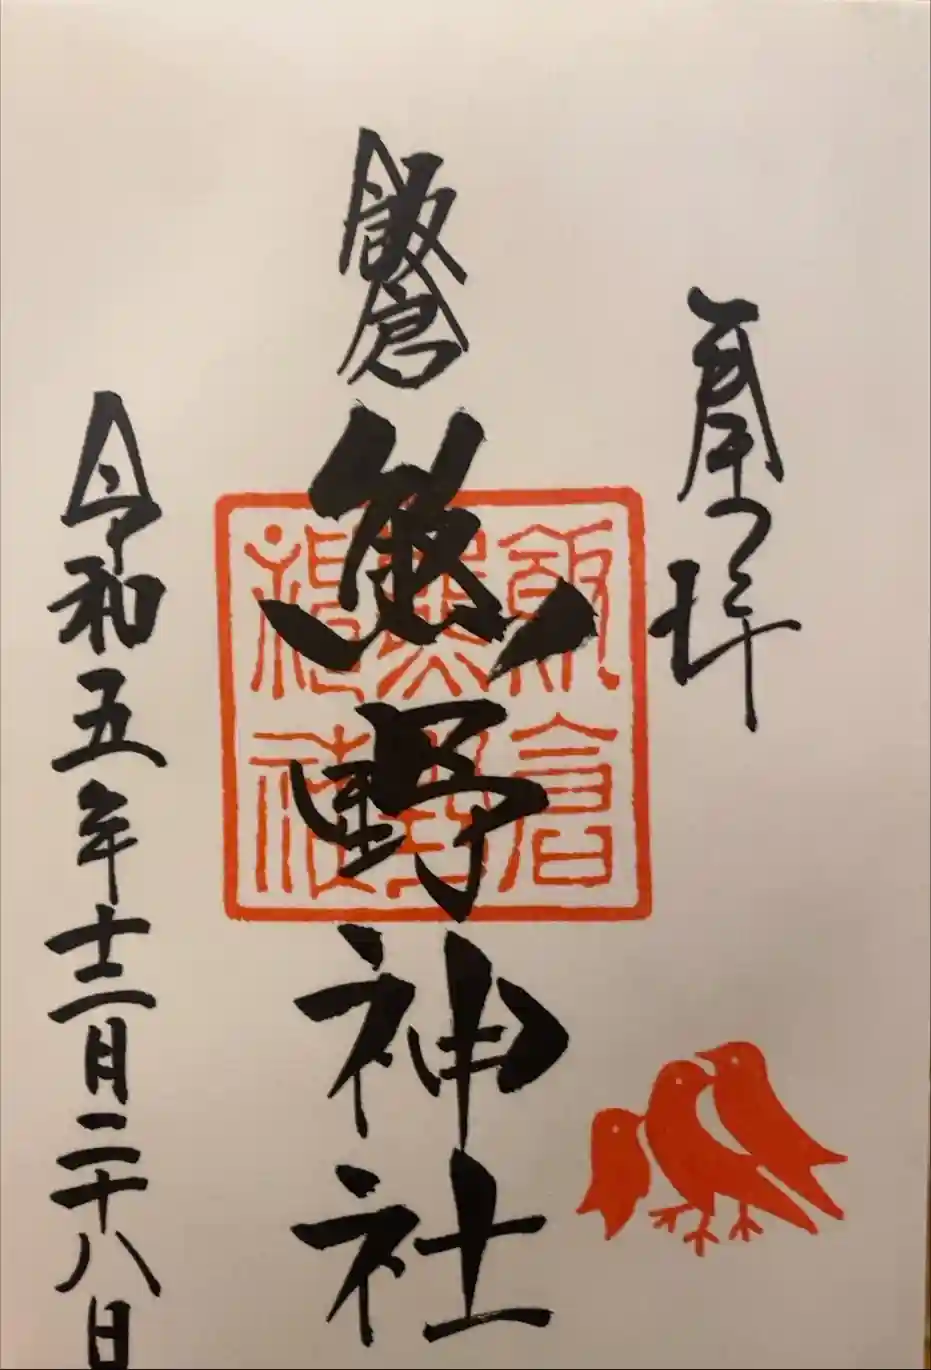 奉拝
飯倉
熊野神社
飯倉
熊野
神社
令和五年十二月二十八日